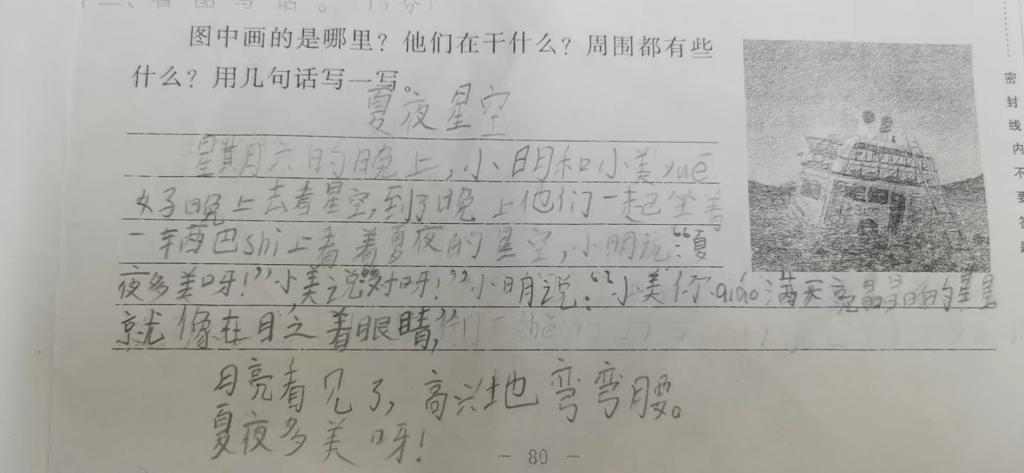 二、看图写话。（15分）
图中画的是哪里？他们在干什么？周围都有些
什么？用几句话写一写。
夏夜星空
星期六的晚上，小明和小美yuē
好晚上去看星空，到了晚上他们一起坐着
一辆巴shì上看着夏夜的星空，小明说：“夏
夜多美呀！”小美说“对呀！”小明说：“小美你qiáo满天亮晶晶的星星
就像在眨着眼睛，”
月亮看见了，高兴地弯弯腰。
夏夜多美呀！
密封线内不要答题
- 80 -